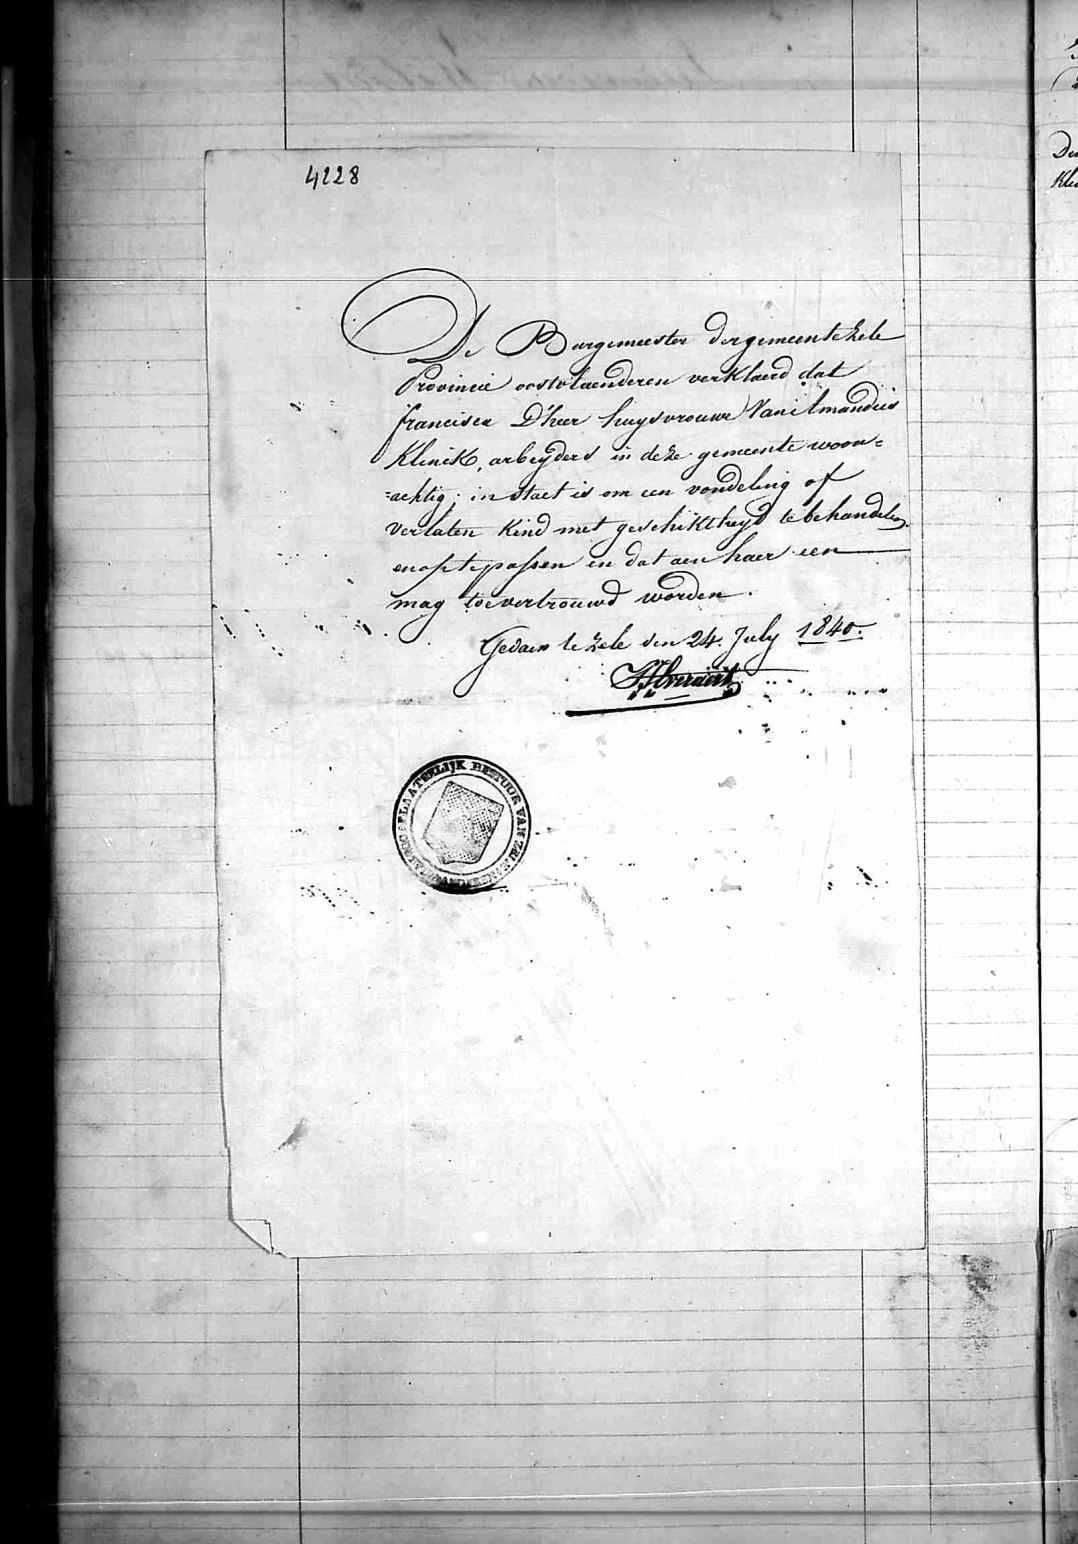 4228
De Burgemeester der gemeente Zele
Provincie oostvlaenderen verklaerd dat
francisca D'heer huysvrouwe Van
Klinck, arbeyders in deze gemeente woon=
=achtig: in staet is om een vondeling of
verlaten kind met geschiktheyd te behandelen
en op te passen en dat aen haer een
mag toevertrouwd worden.
Gedaen te Zele den 24. July 1840.
PLAATSELIJK BESTUUR VAN ZELE
De